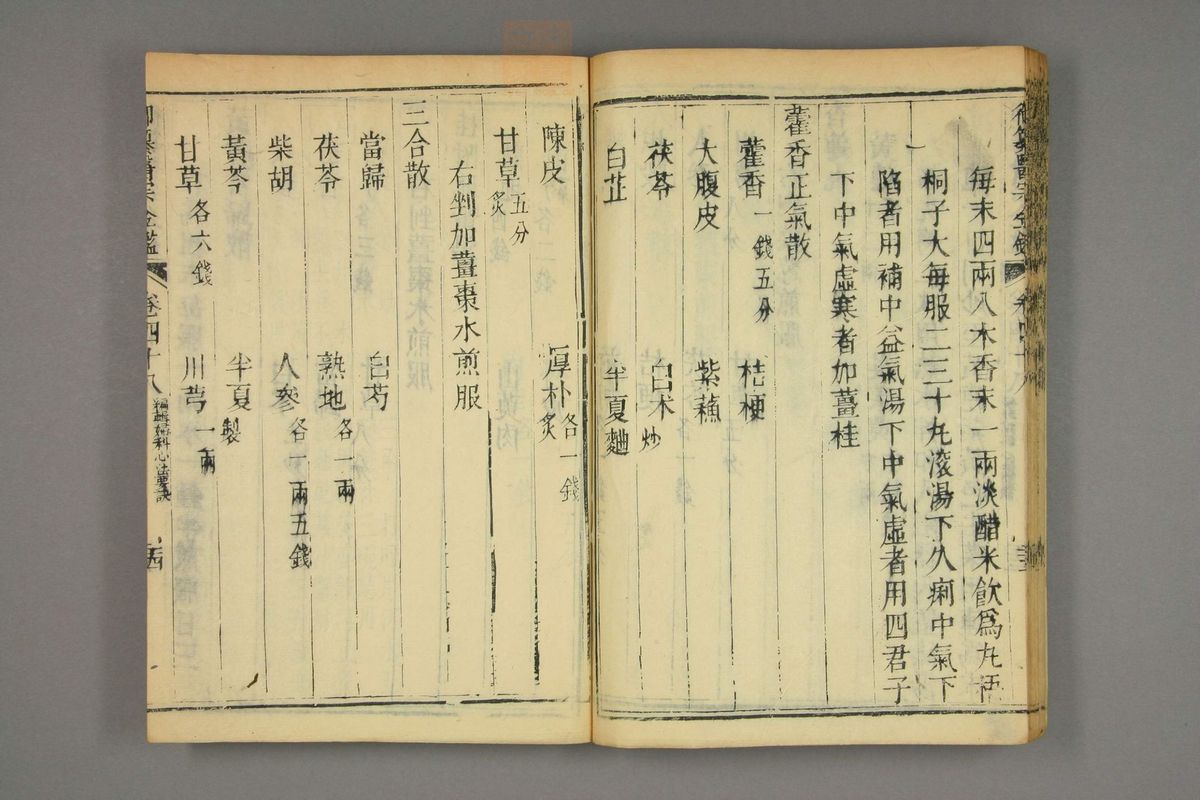 每末四兩入木香末一兩淡醋米飲爲丸梧
桐子大每服二三十丸滾湯下久痢中氣下
陷者用補中益氣湯下中氣虛者用四君子
下中氣虛寒者加薑桂
藿香正氣散
藿香一錢五分 桔梗
大腹皮 紫蘓
茯苓 白术炒
白芷 半夏麯
陳皮 厚朴炙各一錢
甘草炙五分
右剉加薑棗水煎服
三合散
當歸 白芍
茯苓 熟地各一兩
柴胡 人參各一兩五錢
黃芩 半夏製
甘草各六錢 川芎一兩
御纂醫宗金鑑 卷四十八 編輯婦科心法要訣